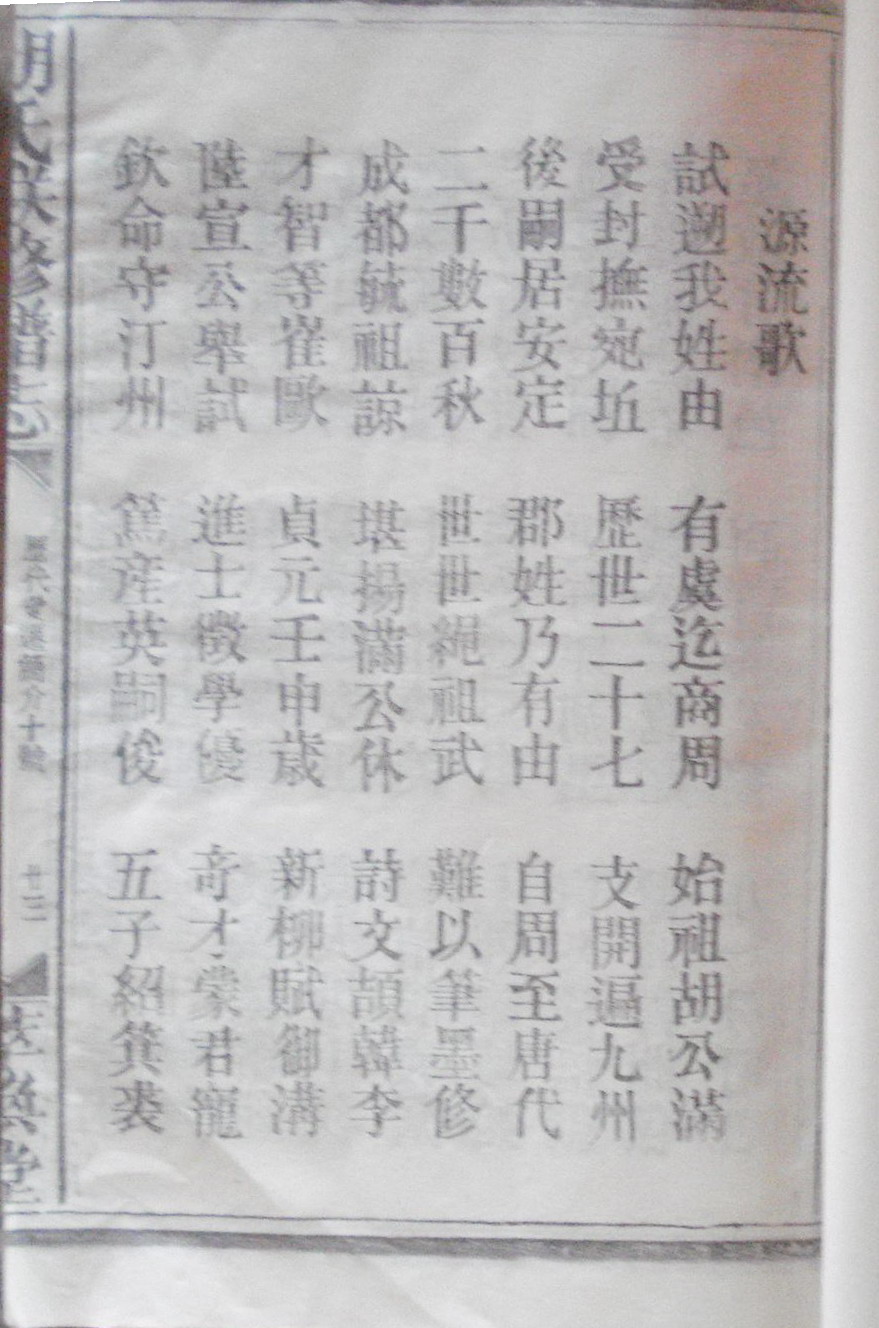 源流歌
試遡我姓由 有虞迄商周 始祖胡公滿
受封撫宛坵 歷世二十七 支開遍九州
後嗣居安定 郡姓乃有由 自周至唐代
二千數百秋 世世繩祖武 難以筆墨修
成都毓祖諒 堪揚滿公休 詩文頡韓李
才智等崔歐 貞元壬申歲 新柳賦御溝
陸宣公舉試 進士徵學優 奇才蒙君寵
欽命守汀州 篤產英嗣俊 五子紹箕裘
胡氏族修譜志
廿三